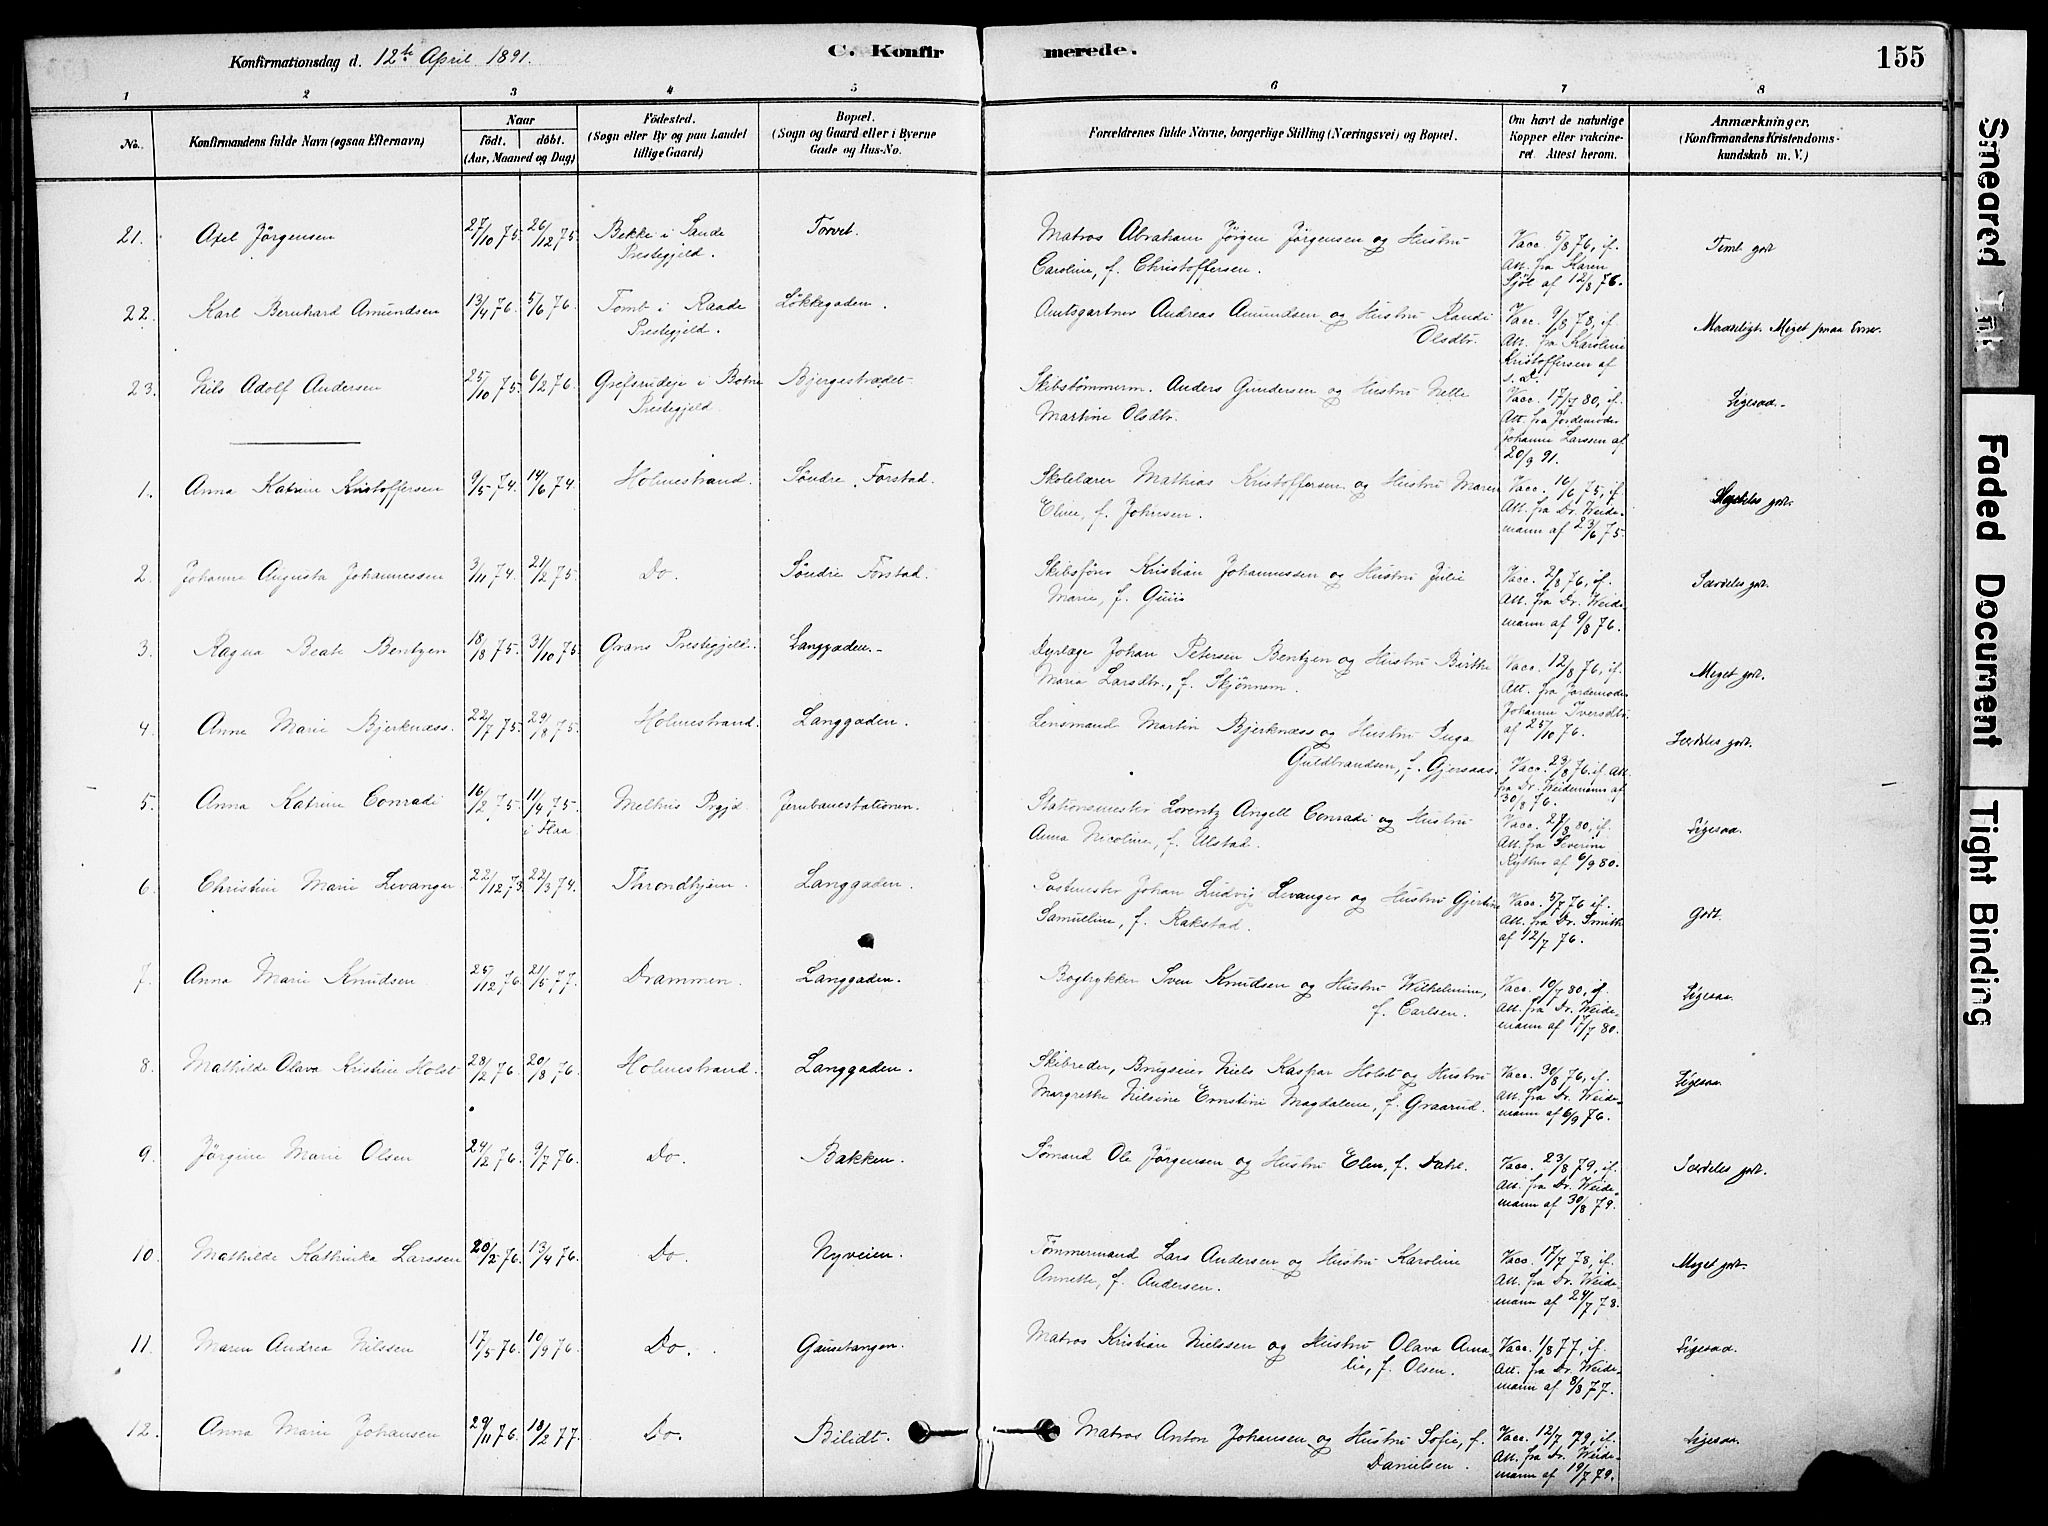 Konfirmationsdag d. 12te April 1891.
C. Konfirmerede.
155
1 2 3 4 5 6 7 8
No.
Konfirmandens fulde Navn (ogsaa Efternavn)
Naar
födt. döbt.
(Aar, Maaned og Dag)
Födested.
(Sogn eller By og paa Landet
tillige Gaard)
Bopæl.
(Sogn og Gaard eller i Byerne
Gade og Hus-No.
Forældrenes fulde Navne, borgerlige Stilling (Næringsvei) og Bopæl.
Om havt de naturlige
Kopper eller vakcine-
ret Attest herom.
Anmærkninger.
(Konfirmandens Kristendoms-
kundskab m. V.)
21. Axel Jörgensen 27/10 75. 26/12 75. Bekke i Sande Torvet. Matros Abraham Jörgen Jörgensen og Hustru Vacc. 5/8 76, if. Temt. godt
Prestegjeld. Caroline, f. Christoffersen. Att. fra Karen
Sjöl af 12/8 76.
22. Karl Bernhard Amundsen 13/4 76. 5/6 76. Tomb i Raade Løkkegaden. Amtsgartner Andreas Amundsen og Hustru Randi Vacc. 9/8 78, if. Maadeligt. Meget smaa Evner.
Prestegjeld. Olsdtr. Att. fra Karoline
Kristoffersen af
s. D.
23. Nils Adolf Andersen 25/10 75. 6/2 76. Grefsrudeje i Botne Bjergestrædet. Skibstömmerm. Anders Gundersen og Hustru Nelle Vacc. 17/7 80, if. Ligesaa.
Prestegjeld. Martine Olsdtr. Att. fra Jordemoder
Johanne Larssen af
20/3 91.
1. Anna Katrine Kristoffersen 9/5 74. 14/6 74. Holmestrand. Söndre Forstad. Skolelærer Mathias Kristoffersen og Hustru Maren Vacc. 16/6 75, if. Særdeles godt.
Eline, f. Johnsen. Att. fra Dr. Weide-
mann af 23/6 75.
2. Johanne Augusta Johannessen 3/11 74. 21/2 75. Do. Söndre Forstad. Skibsförer Kristian Johannessen og Hustru Julie Vacc. 2/8 76, if. Særdeles godt.
Marie, f. Att. fra Dr. Weide-
mann af 9/8 76.
3. Ragna Beate Bentzen 18/8 75. 31/10 75. Grans Prestegjeld. Langgaden. Dyrlæge Johan Petersen Bentzen og Hustru Birthe Vacc. 12/8 76, if. Meget godt.
Maria Larsdtr., f. Skjönnem. Att. fra Jordemoder
Johanne Iversdtr.
af 25/10 76.
4. Anne Marie Bjerknæss. 22/7 75. 29/8 75. Holmestrand. Langgaden. Lensmand Martin Bjerknæss og Hustru Inga Særdeles godt.
Guldbrandsen, f. Gjersaas. Vacc. 23/8 76. if. Att.
fra Dr. Weidemann af
30/8 76.
5. Anna Katrine Conradi 16/2 75. 11/4 75. Melhus Prgjd. Jernbanestationen. Stationsmester Lorentz Angell Conradi og Hustru Vacc. 27/8 80, if. Ligesaa.
i Flaa Anna Nicoline, f. Ulstad. Att. fra Severine
Rytter af 6/9 80.
6. Christine Marie Levanger 22/12 73. 22/3 74. Throndhjem. Langgaden. Postmester Johan Ludvig Levanger og Hustru Gjertine Vacc. 5/7 76 if. Godt.
Samulline, f. Rakstad. Att. fra Dr. Smith
af 12/7 76.
7. Anna Marie Knudsen 25/12 76. 21/5 77. Drammen. Langgaden. Bogtrykker Sven Knudsen og Hustru Wilhelmine, Vacc. 10/7 80, if. Ligesaa.
f. Carlsen. Att. fra Dr. Weide-
mann af 17/7 80.
8. Mathilde Olava Kristine Holst 28/2 76. 20/8 76. Holmestrand. Langgaden. Skibreder, Brugseier Niels Kaspar Holst og Hustru Vacc. 30/8 76, if. Ligesaa.
Margrethe Nilsine Ernstine Magdalene, f. Graarud. Att. fra Dr. Weide-
mann af 6/9 76.
9. Jörgine Marie Olsen 24/2 76. 9/7 76. Do. Bakken. Sömand Ole Jörgensen og Hustru Elen, f. Dahl. Vacc. 23/8 79, if. Særdeles godt.
Att. fra Dr. Weide-
mann af 30/8 79.
10. Mathilde Kathinka Larssen 20/2 76. 13/4 76. Do. Nyveien. Tömmermand Lars Andersen og Hustru Karoline Vacc. 17/7 78, if. Meget godt.
Annette, f. Andersen. Att. fra Dr. Weide-
mann af 24/7 78.
11. Maren Andrea Nilssen 17/5 76. 10/9 76. Do. Gausetangen. Matros Kristian Nielssen og Hustru Olava Ama- Vacc. 1/8 77, if. Ligesaa.
lie, f. Olsen. Att. fra Dr. Weide-
mann af 8/8 77.
12. Anna Marie Johansen 29/11 76. 18/2 77. Do. Bilidt. Matros Anton Johansen og Hustru Sofie, f. Vacc. 12/7 79, if. Ligesaa.
Danielsen. Att. fra Dr. Weide-
mann af 19/7 79.
Smeared Ink
Faded Document
Tight Binding